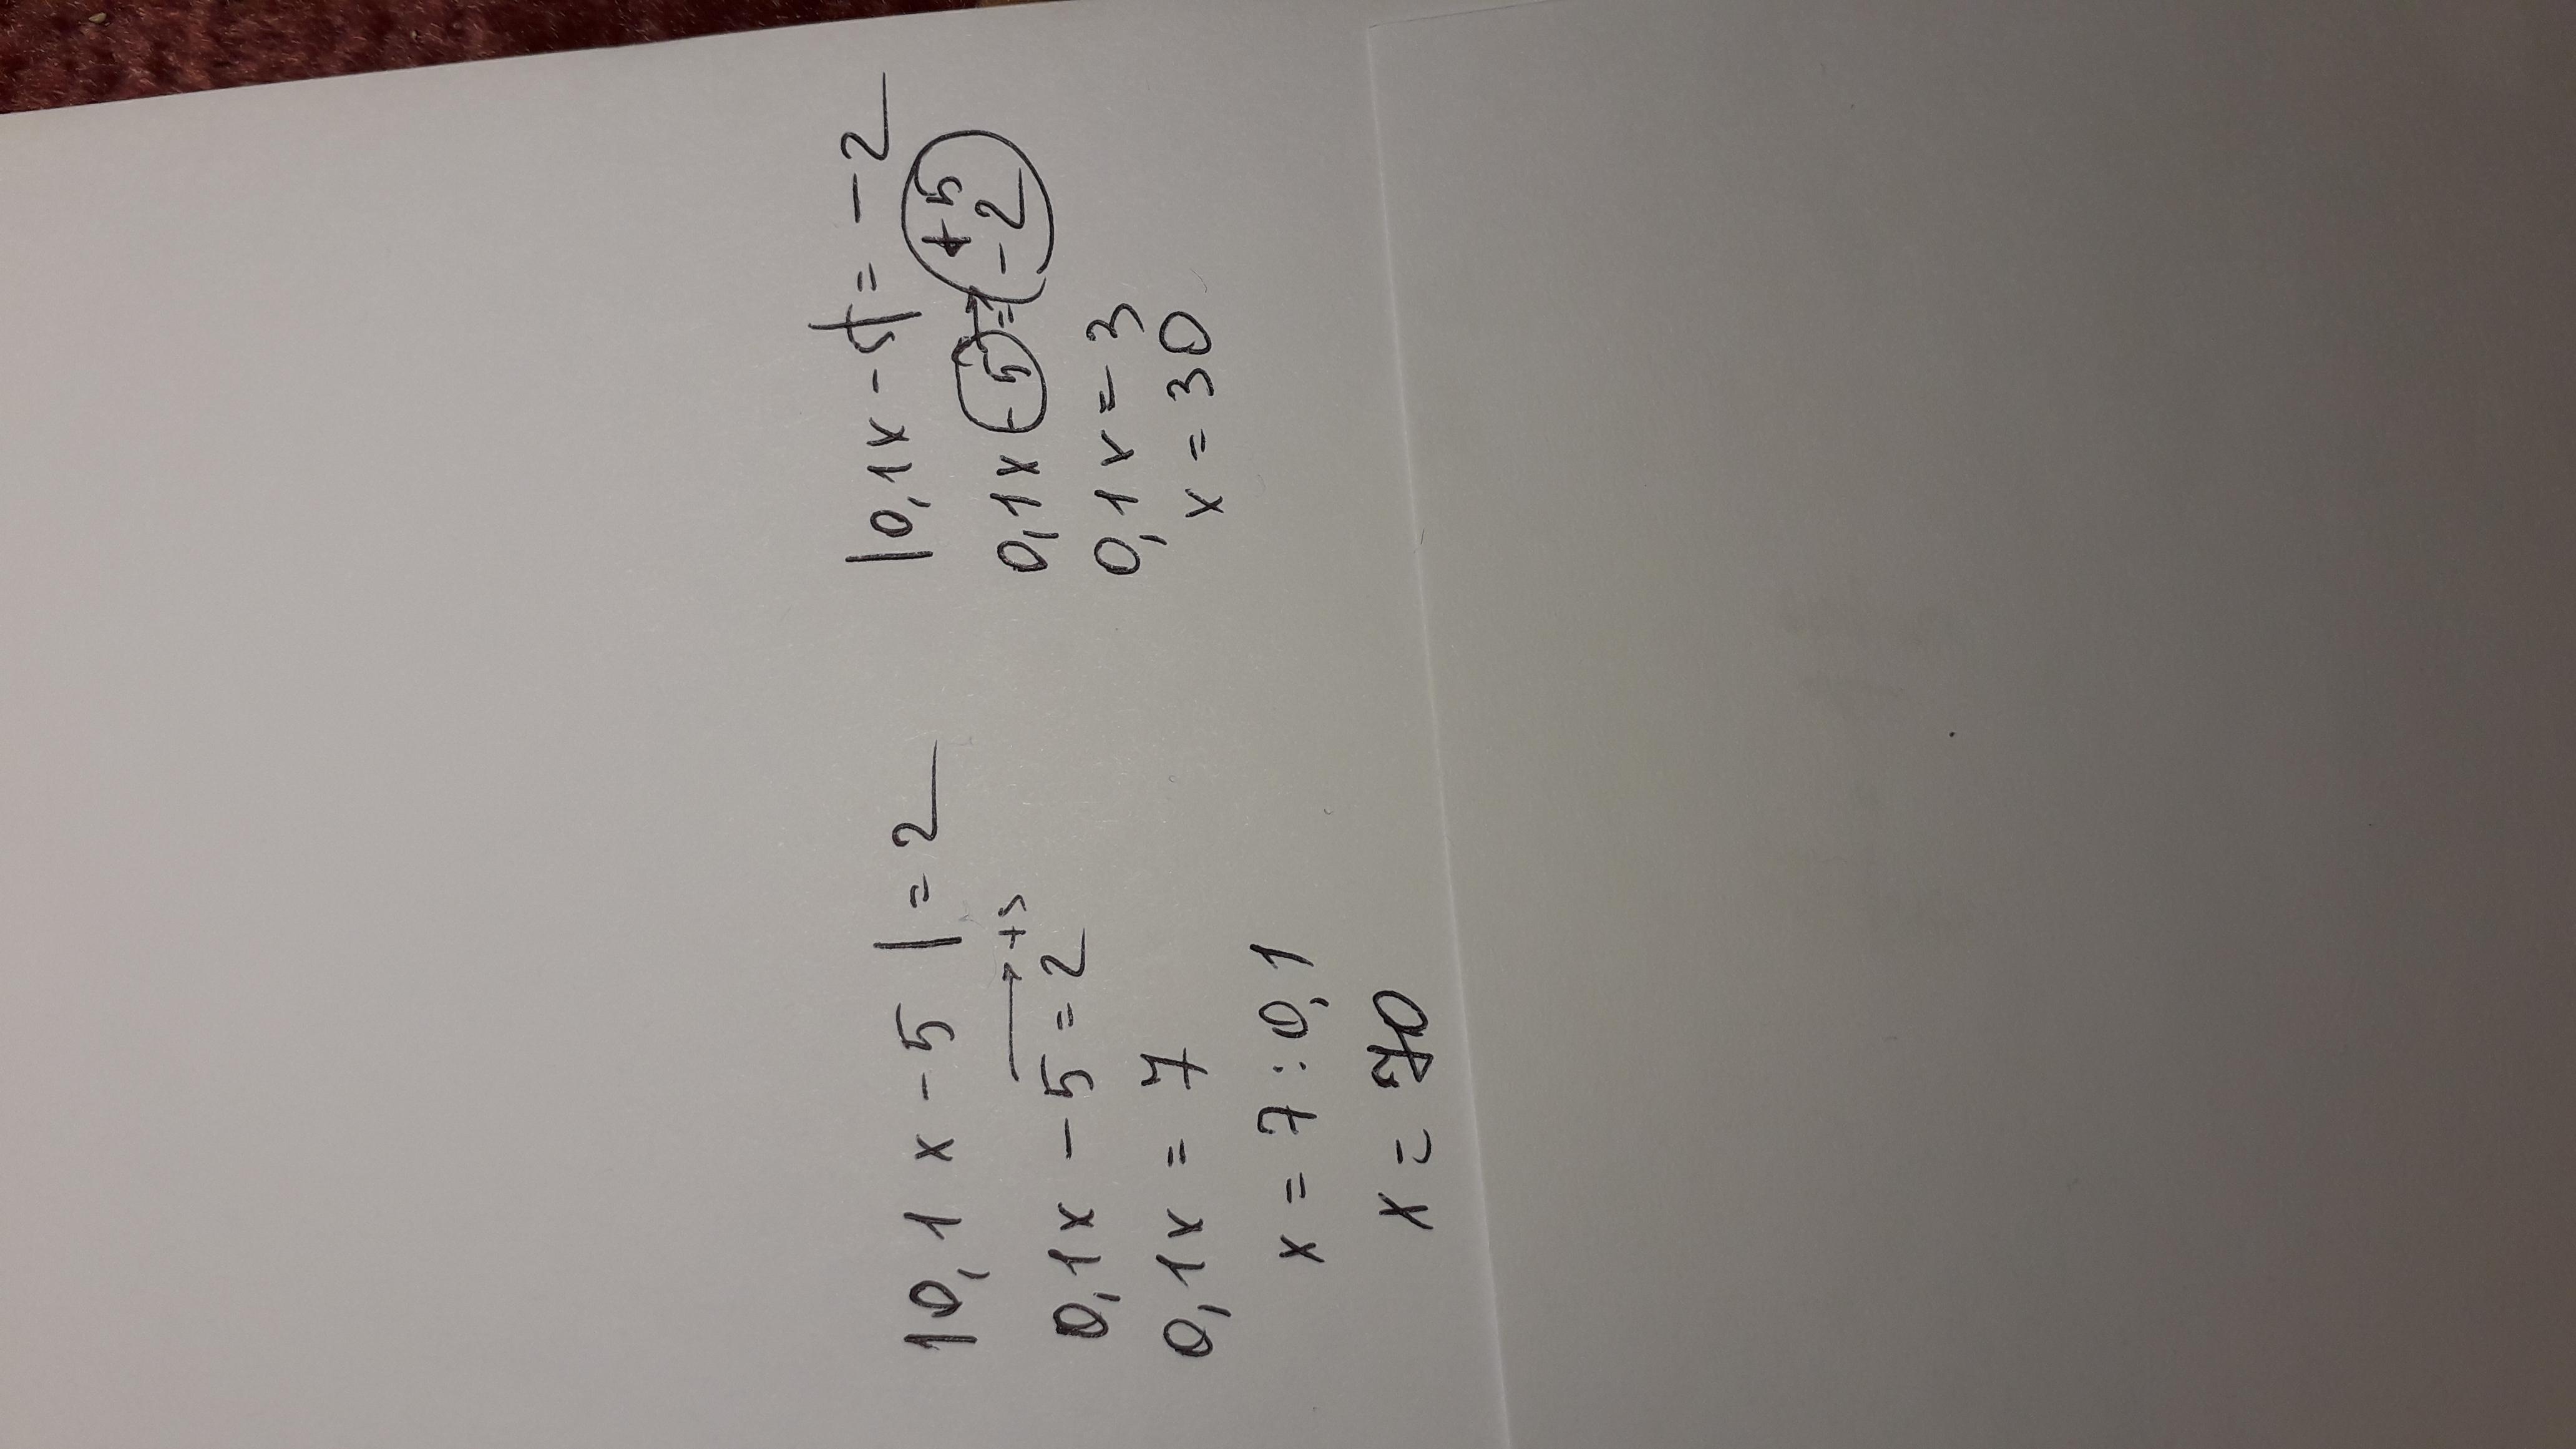 |0,1x-5|=2
+5
0,1x-5=2
0,1x=7
x=7:0,1
x=70
|0,1x-5|=-2
+5
0,1x-5=-2
0,1x=3
x=30